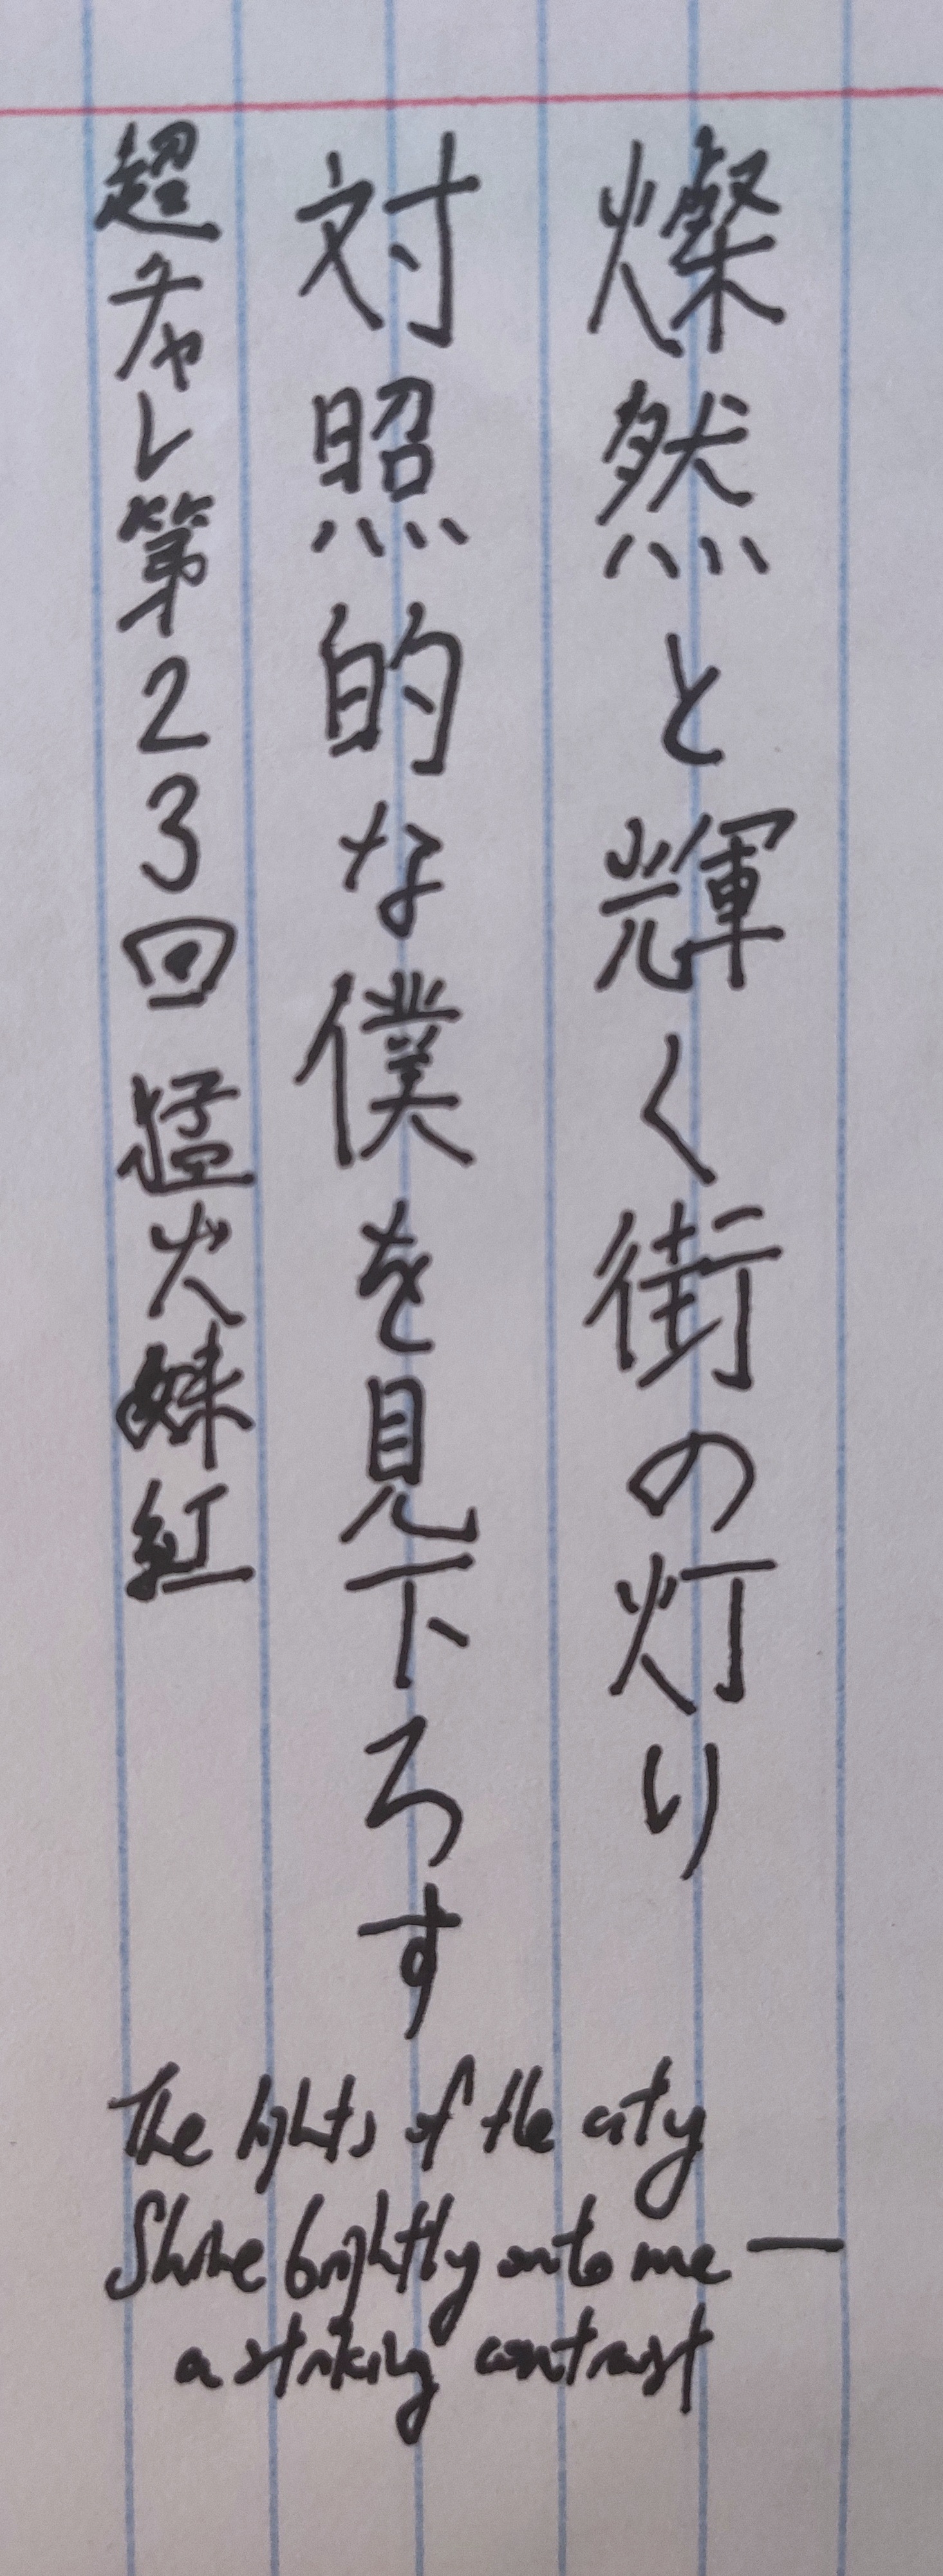 燦然と輝く街の灯り
対照的な僕を見下ろす
超チャレ第23回 猛火妹紅
The lights of the city
Shine brightly onto me —
a striking contrast